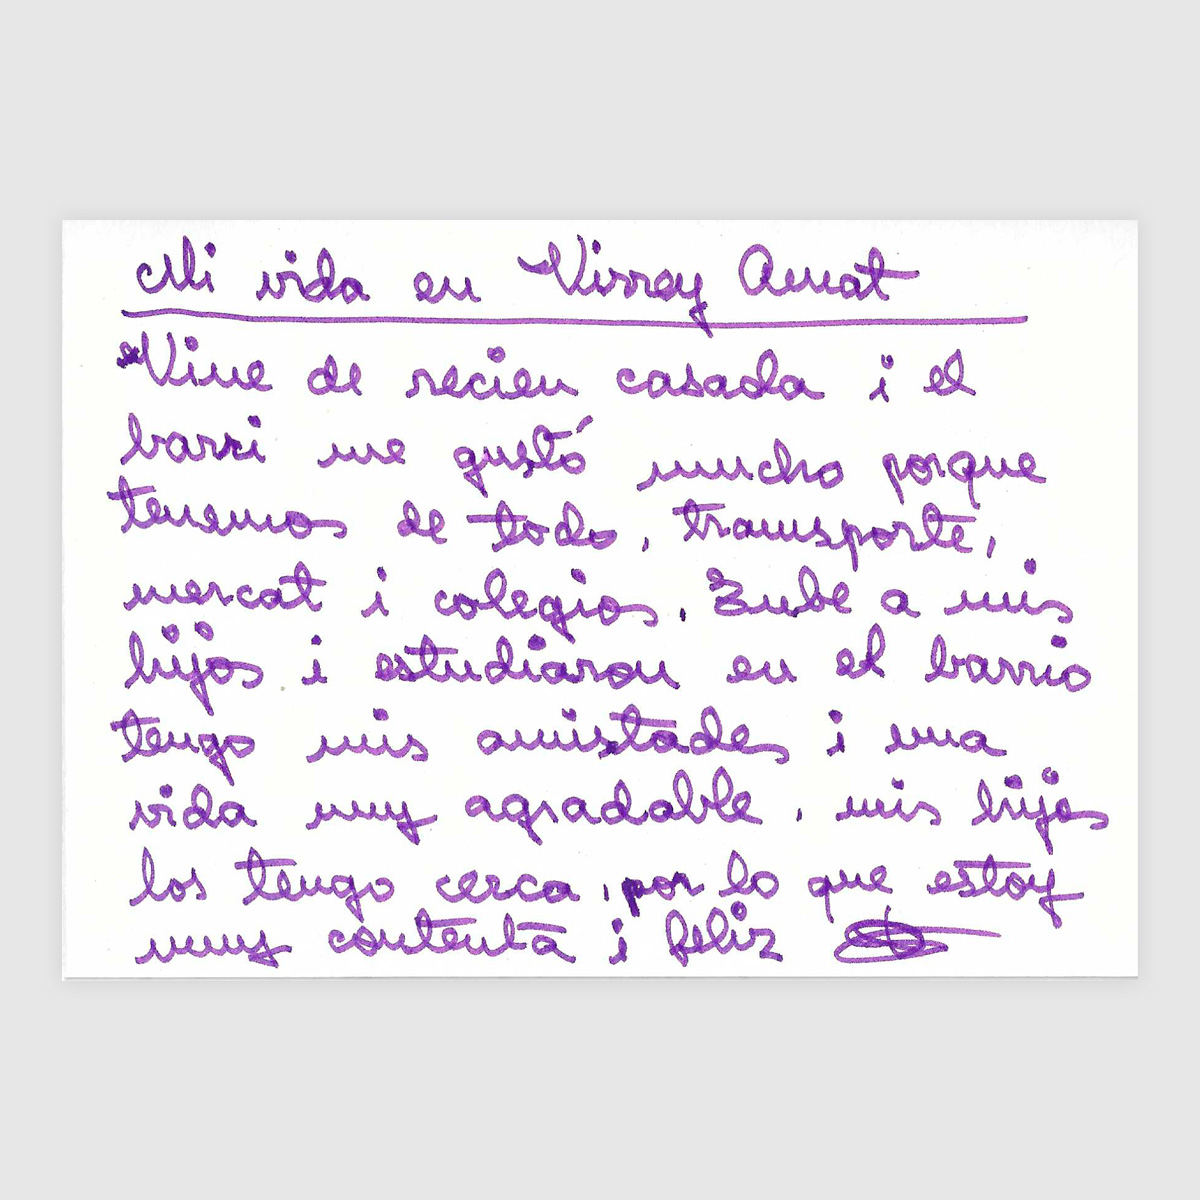 Mi vida en Virrey Amat
Vine de recien casada i el
barri me gustó mucho porque
tenemos de todo, transporte,
mercat i colegios, Tube a mis
hijos i estudiaron en el barrio
tengo mis amistades i una
vida muy agradable, mis hijos
los tengo cerca, por lo que estoy
muy contenta i feliz